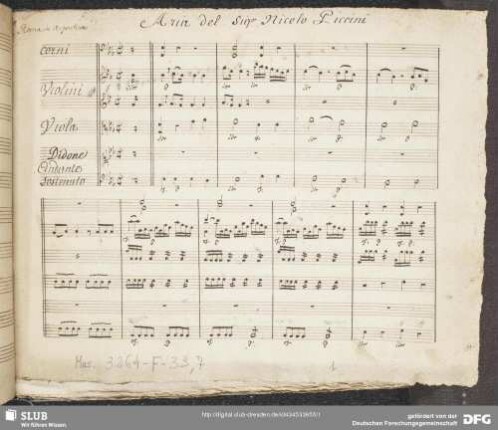 Aria del Sigr Nicolo Piccini
Corni
Violini
Viola
Didone
Andante
Sostenuto
Mus. 3264-F-33,7
1
SLUB
Wir führen Wissen.
http://digital.slub-dresden.de/id434353965/1
gefördert von der
Deutschen Forschungsgemeinschaft
DFG